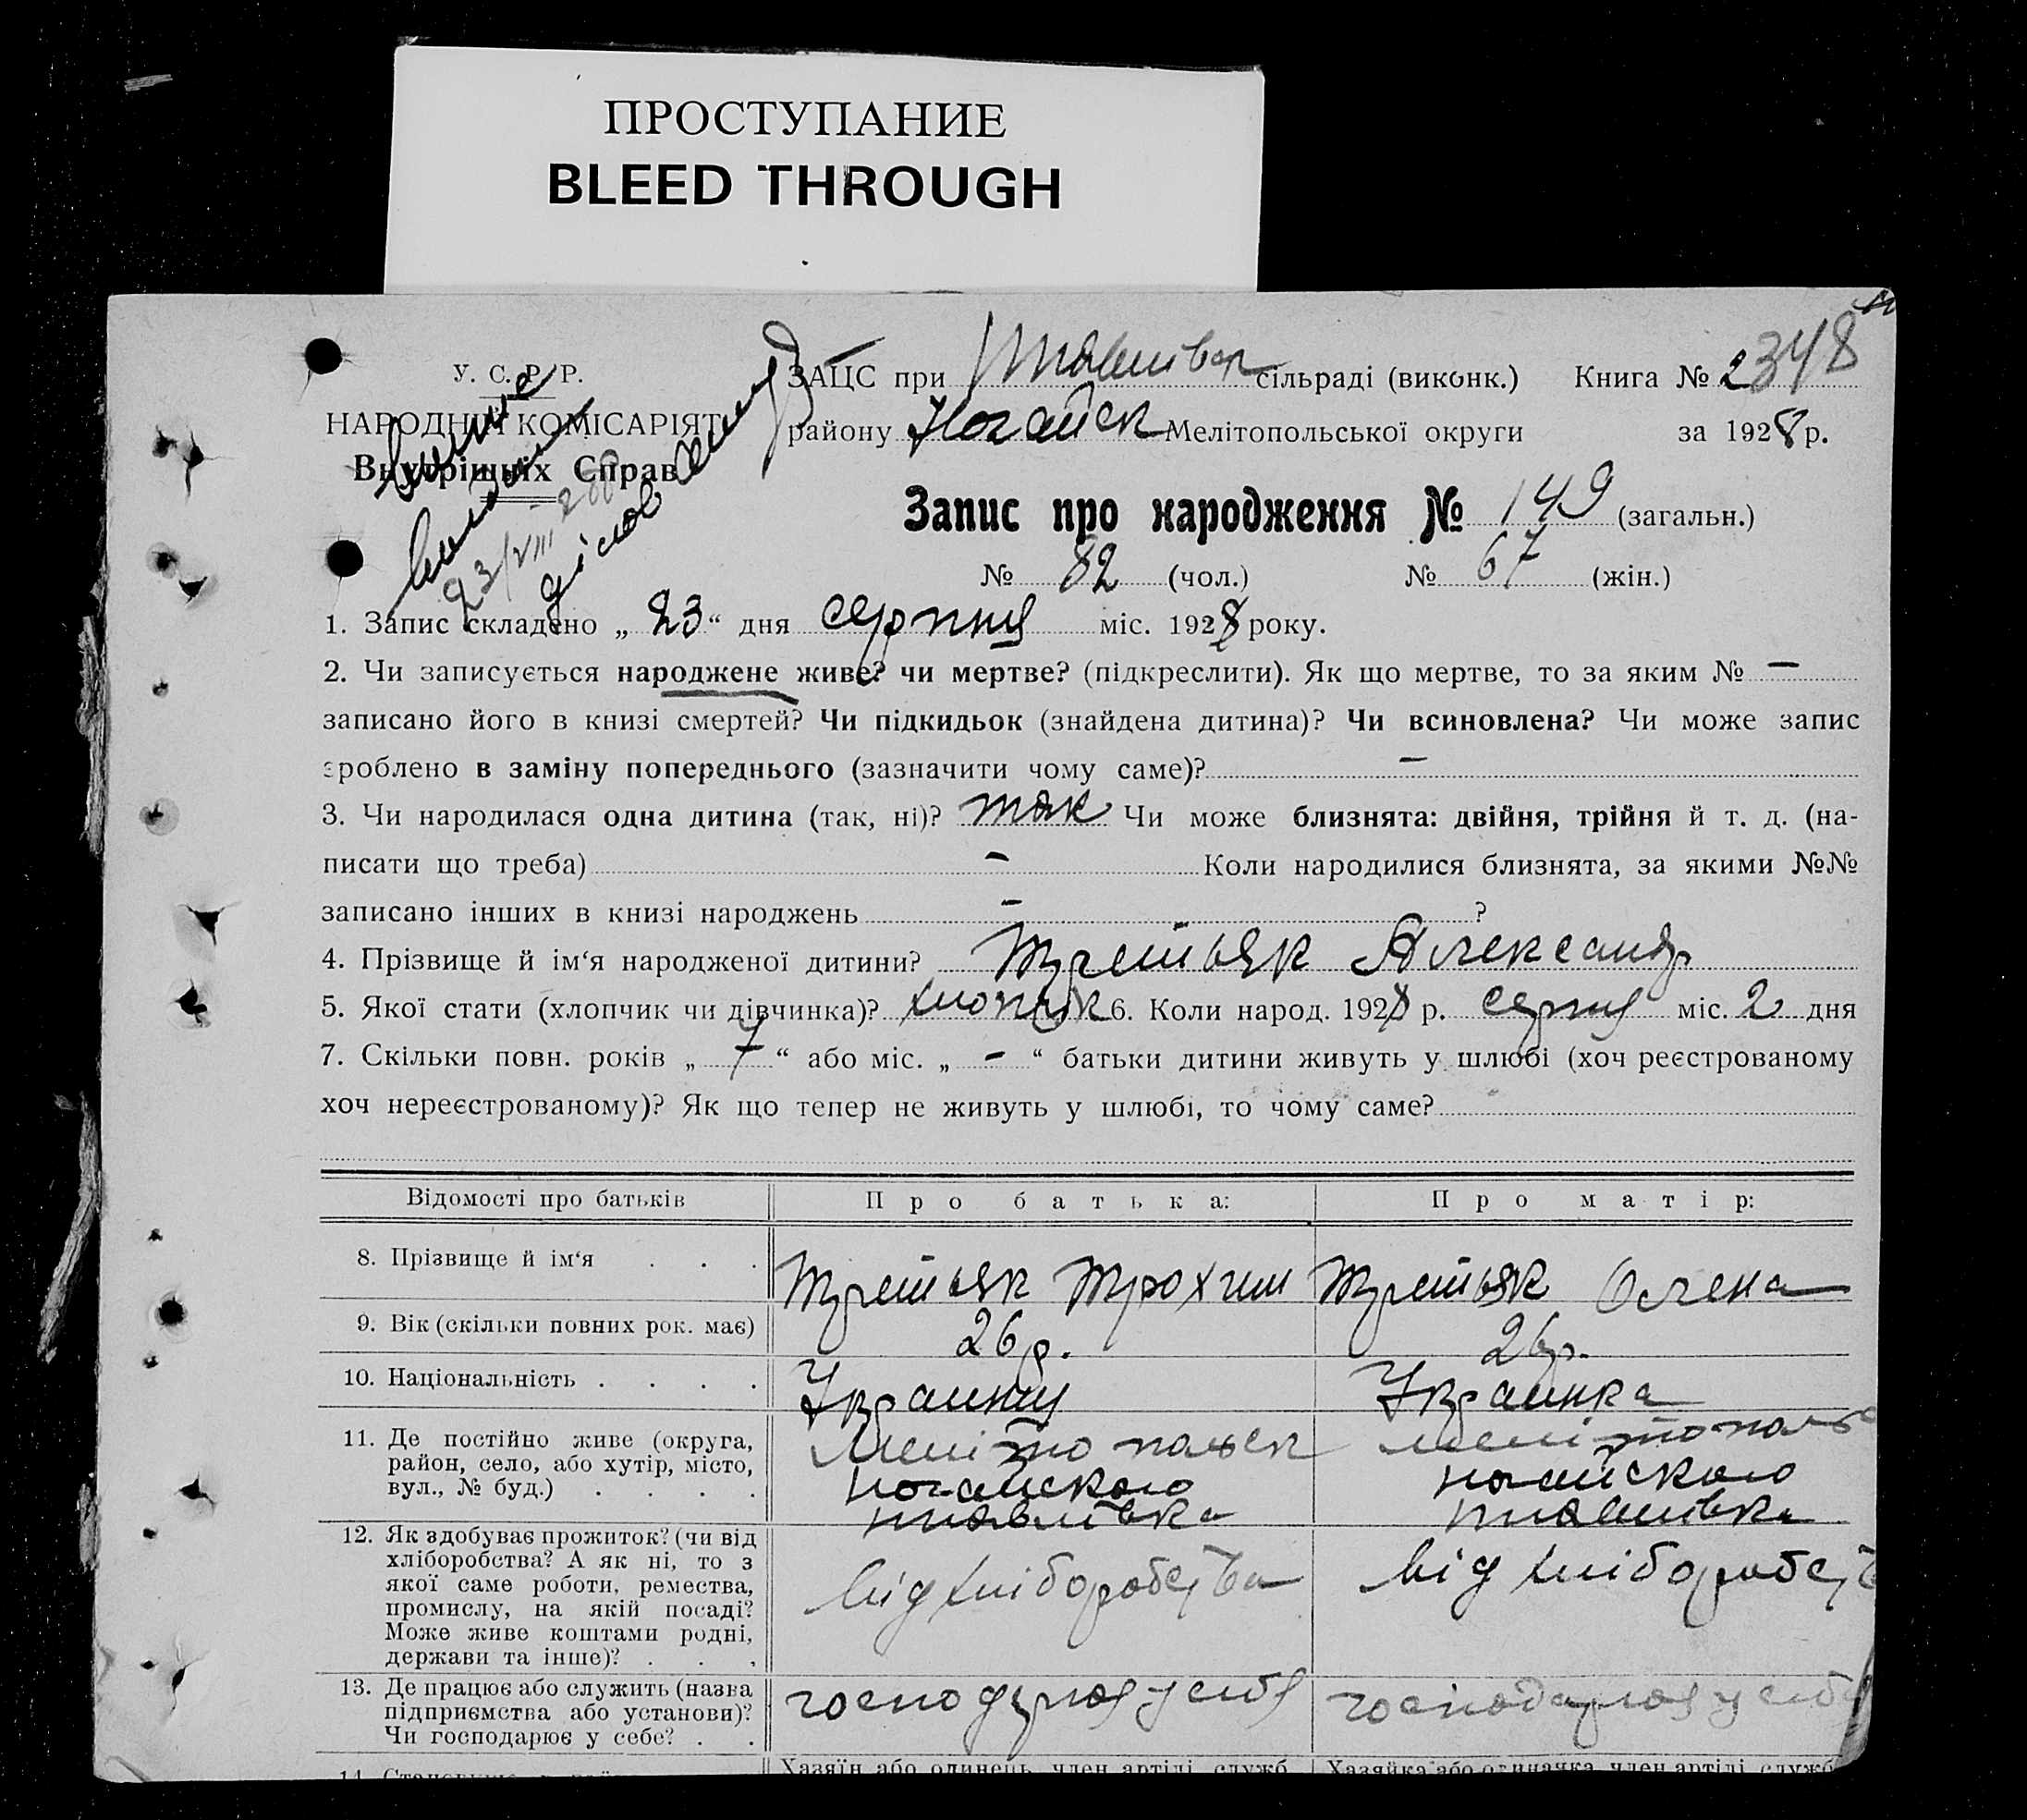 ПРОСТУПАНИЕ
BLEED THROUGH
У. С. Р. Р.
НАРОДНИЙ КОМІСАРІЯТ
Внутрішніх Справ
23/VIII
ЗАЦС при сільраді (виконк.) Книга № 2348
району Ногайск Мелітопольської округи за 1928 р.
Запис про народження № 149 (загальн.)
№ 82 (чол.) № 67 (жін.)
1. Запис складено „ 23 “ дня серпня міс. 1928 року.
2. Чи записується народжене живе? чи мертве? (підкреслити). Як що мертве, то за яким № —
записано його в книзі смертей? Чи підкидьок (знайдена дитина)? Чи всиновлена? Чи може запис
зроблено в заміну попереднього (зазначити чому саме)? —
3. Чи народилася одна дитина (так, ні)? так Чи може близнята: двійня, трійня й т. д. (на-
писати що треба) — Коли народилися близнята, за якими №№
записано інших в книзі народжень — ?
4. Прізвище й ім‘я народженої дитини? Третьяк Александр
5. Якої стати (хлопчик чи дівчинка)? хлопчик 6. Коли народ. 1928 р. серпня міс. 2 дня
7. Скільки повн. років „ 7 “ або міс. „ — “ батьки дитини живуть у шлюбі (хоч реєстрованому
хоч нереєстрованому)? Як що тепер не живуть у шлюбі, то чому саме?
Відомості про батьків Про батька: Про матір:
8. Прізвище й ім‘я . . . Третьяк Трохим Третьяк Олена
9. Вік (скільки повних рок. має) 26 р. 26 р.
10. Національність . . . . Украинец Украинка
11. Де постійно живе (округа,
район, село, або хутір, місто,
вул., № буд.) . . . .
Мелітопольск
ногайского
Мелітополь
ногайского
12. Як здобуває прожиток? (чи від
хліборобства? А як ні, то з
якої саме роботи, ремества,
промислу, на якій посаді?
Може живе коштами родні,
держави та інше)? . . .
від хліборобства
від хліборобств
13. Де працює або служить (назва
підприємства або установи)?
Чи господарює у себе? . .
господарює у себя
господарює у себя
Хазяїн або одинець, член артілі, служб.
Хазяйка або одиначка, член артілі, служб